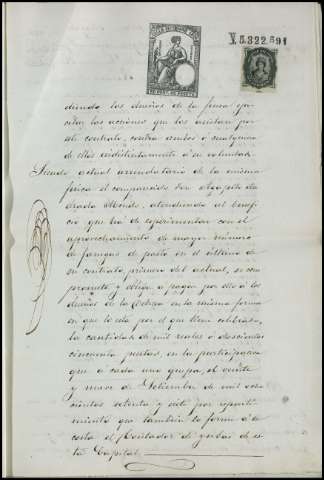 V.5.322.591
diendo los dueños de la finca ejer
citar las acciones que les asistan por
este contrato, contra ambos ó cualquiera
de ellos indistintamente á su voluntad.
Siendo actual arrendatario de la misma
finca el compareciente Don
Prado Mendo, atendiendo al benefi
cio que ha de experimentar con el
aprovechamiento de mayor número
de fanegas de pasto en el último de
su contrato, primero del actual, se com
promete y obliga á pagar por ello á los
dueños de la Dehesa en la misma forma
en que lo está por el que tiene celebrado,
la cantidad de mil reales ó doscientas
cincuenta pesetas, en la participacion
que á cada uno ocupa, el veinte
y nueve de Setiembre de mil ocho
cientos setenta y siete por reparti
miento que tambien le forme á su
costa el Contador de yerbas de es
ta Capital.